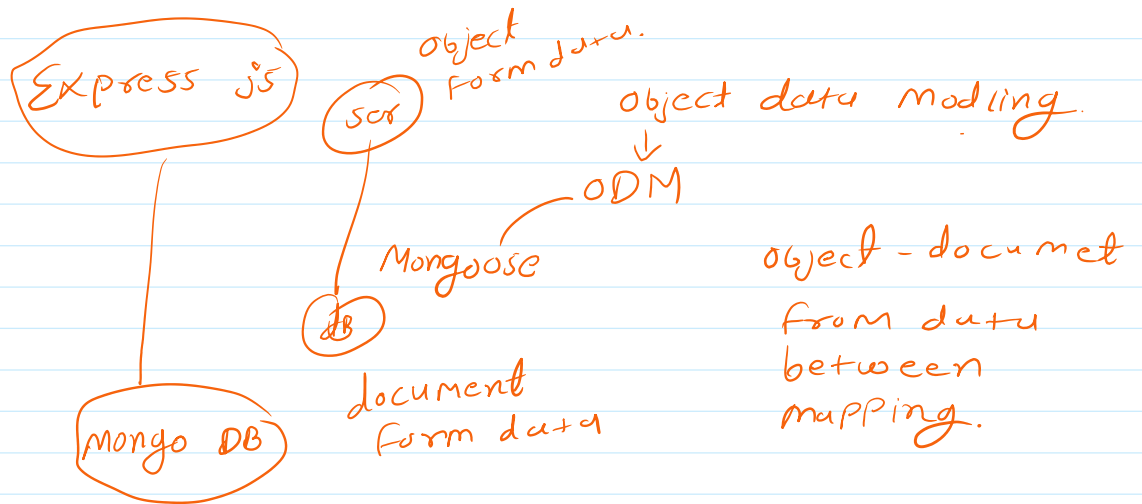 Express js
ser
object
form data.
object data modling.
ODM
Mongoose
DB
Mongo DB
document
form data
object - documet
from data
between
mapping.